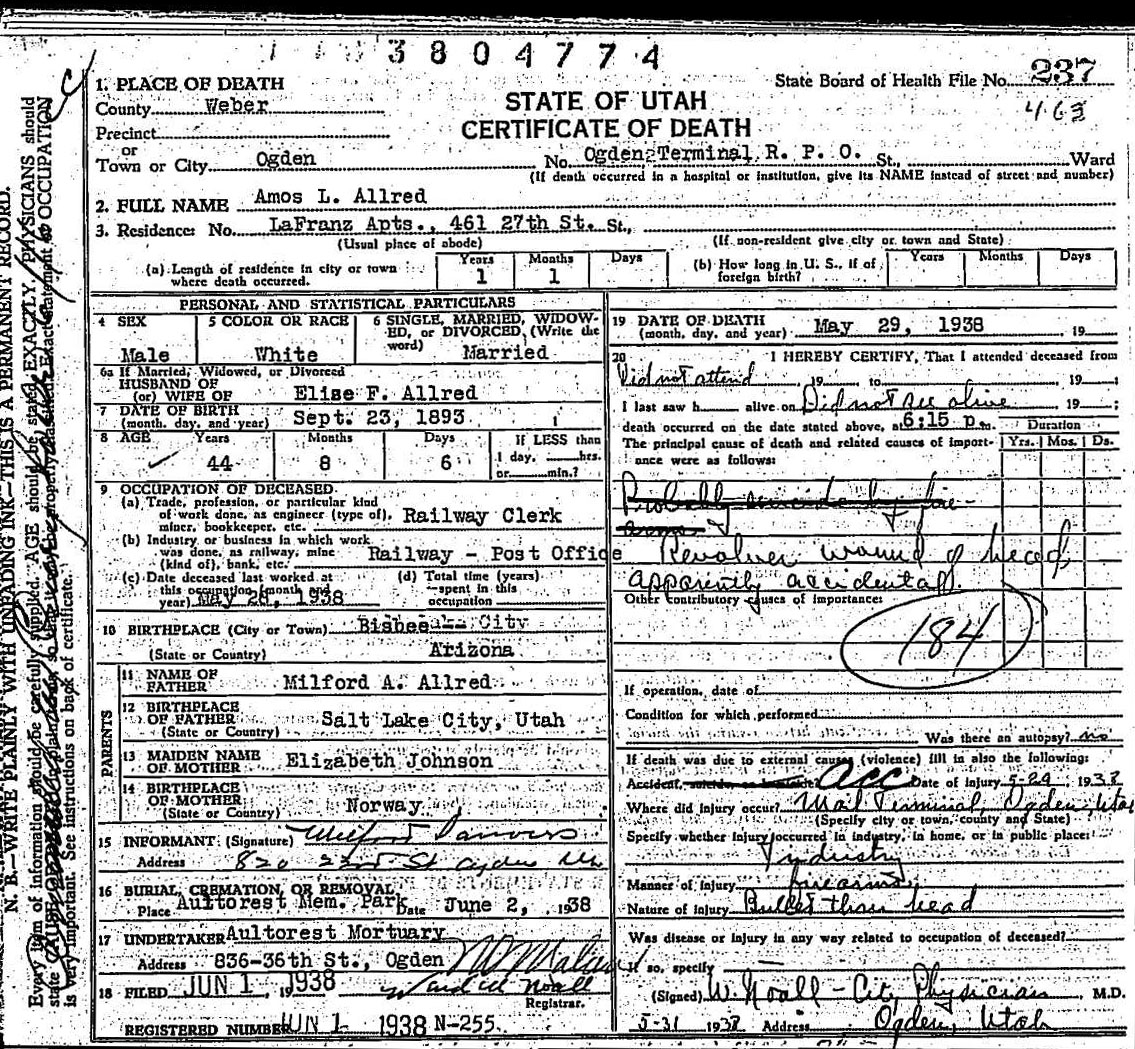 3804774
State Board of Health File No. 237
463
1. PLACE OF DEATH
County Weber
STATE OF UTAH
CERTIFICATE OF DEATH
Precinct
or
Town or City Ogden No. Ogden Terminal R. P. O. St., Ward
(If death occurred in a hospital or institution, give its NAME instead of street and number)
2. FULL NAME Amos L. Allred
3. Residence: No. LaFranz Apts., 461 27th St. St.,
(Usual place of abode) (If non-resident give city or town and State)
(a) Length of residence in city or town where death occurred. Years 1 Months 1 Days
(b) How long in U. S., if of foreign birth? Years Months Days
PERSONAL AND STATISTICAL PARTICULARS
4 SEX Male
5 COLOR OR RACE White
6 SINGLE, MARRIED, WIDOWED, or DIVORCED, (Write the word) Married
6a If Married, Widowed, or Divorced
HUSBAND OF
(or) WIFE OF Elise F. Allred
7 DATE OF BIRTH
(month, day, and year) Sept. 23, 1893
8 AGE Years 44 Months 8 Days 6 If LESS than 1 day, hrs. or min.?
9 OCCUPATION OF DECEASED
(a) Trade, profession, or particular kind of work done, as engineer (type of), miner, bookkeeper, etc. Railway Clerk
(b) Industry or business in which work was done, as railway, mine (kind of), bank, etc. Railway - Post Office
(c) Date deceased last worked at this occupation (month and year) May 28, 1938
(d) Total time (years) spent in this occupation
10 BIRTHPLACE (City or Town) Bisbee City
(State or Country) Arizona
PARENTS
11 NAME OF FATHER Milford A. Allred
12 BIRTHPLACE OF FATHER (State or Country) Salt Lake City, Utah
13 MAIDEN NAME OF MOTHER Elizabeth Johnson
14 BIRTHPLACE OF MOTHER (State or Country) Norway
15 INFORMANT: (Signature) Milford
Address 820 22nd St Ogden
16 BURIAL, CREMATION, OR REMOVAL
Place Aultorest Mem. Park Date June 2, 1938
17 UNDERTAKER Aultorest Mortuary
Address 836-36th St., Ogden
18 FILED JUN 1, 1938 Noall
Registrar.
REGISTERED NUMBER JUN 1 1938 N-255
19 DATE OF DEATH
(month, day, and year) May 29, 1938 19
20 I HEREBY CERTIFY, That I attended deceased from
Did not attend, 19 to 19 ;
I last saw h alive on Did not see alive 19 ;
death occurred on the date stated above, at 6:15 p.m. Duration
The principal cause of death and related causes of importance were as follows: Yrs. Mos. Ds.
Probably suicide by fire-
arms
Revolver wound of head
apparently accidental.
Other contributory causes of importance:
184
If operation, date of
Condition for which performed
Was there an autopsy? no
If death was due to external causes (violence) fill in also the following:
Accident, suicide, or homicide? Acc Date of injury 5-29 1938
Where did injury occur? Mail Terminal, Ogden, Utah
(Specify city or town, county and State)
Specify whether injury occurred in industry, in home, or in public place:
Industry
Manner of injury firearms
Nature of injury Bullet thru head
Was disease or injury in any way related to occupation of deceased?
If so, specify
(Signed) W. Noall - City Physician, M.D.
5-31 1938 Address Ogden, Utah
N. B.—WRITE PLAINLY WITH UNFADING INK—THIS IS A PERMANENT RECORD.
Every item of information should be carefully supplied. AGE should be stated EXACTLY. PHYSICIANS should
state OCCUPATION
is very important. See instructions on back of certificate.